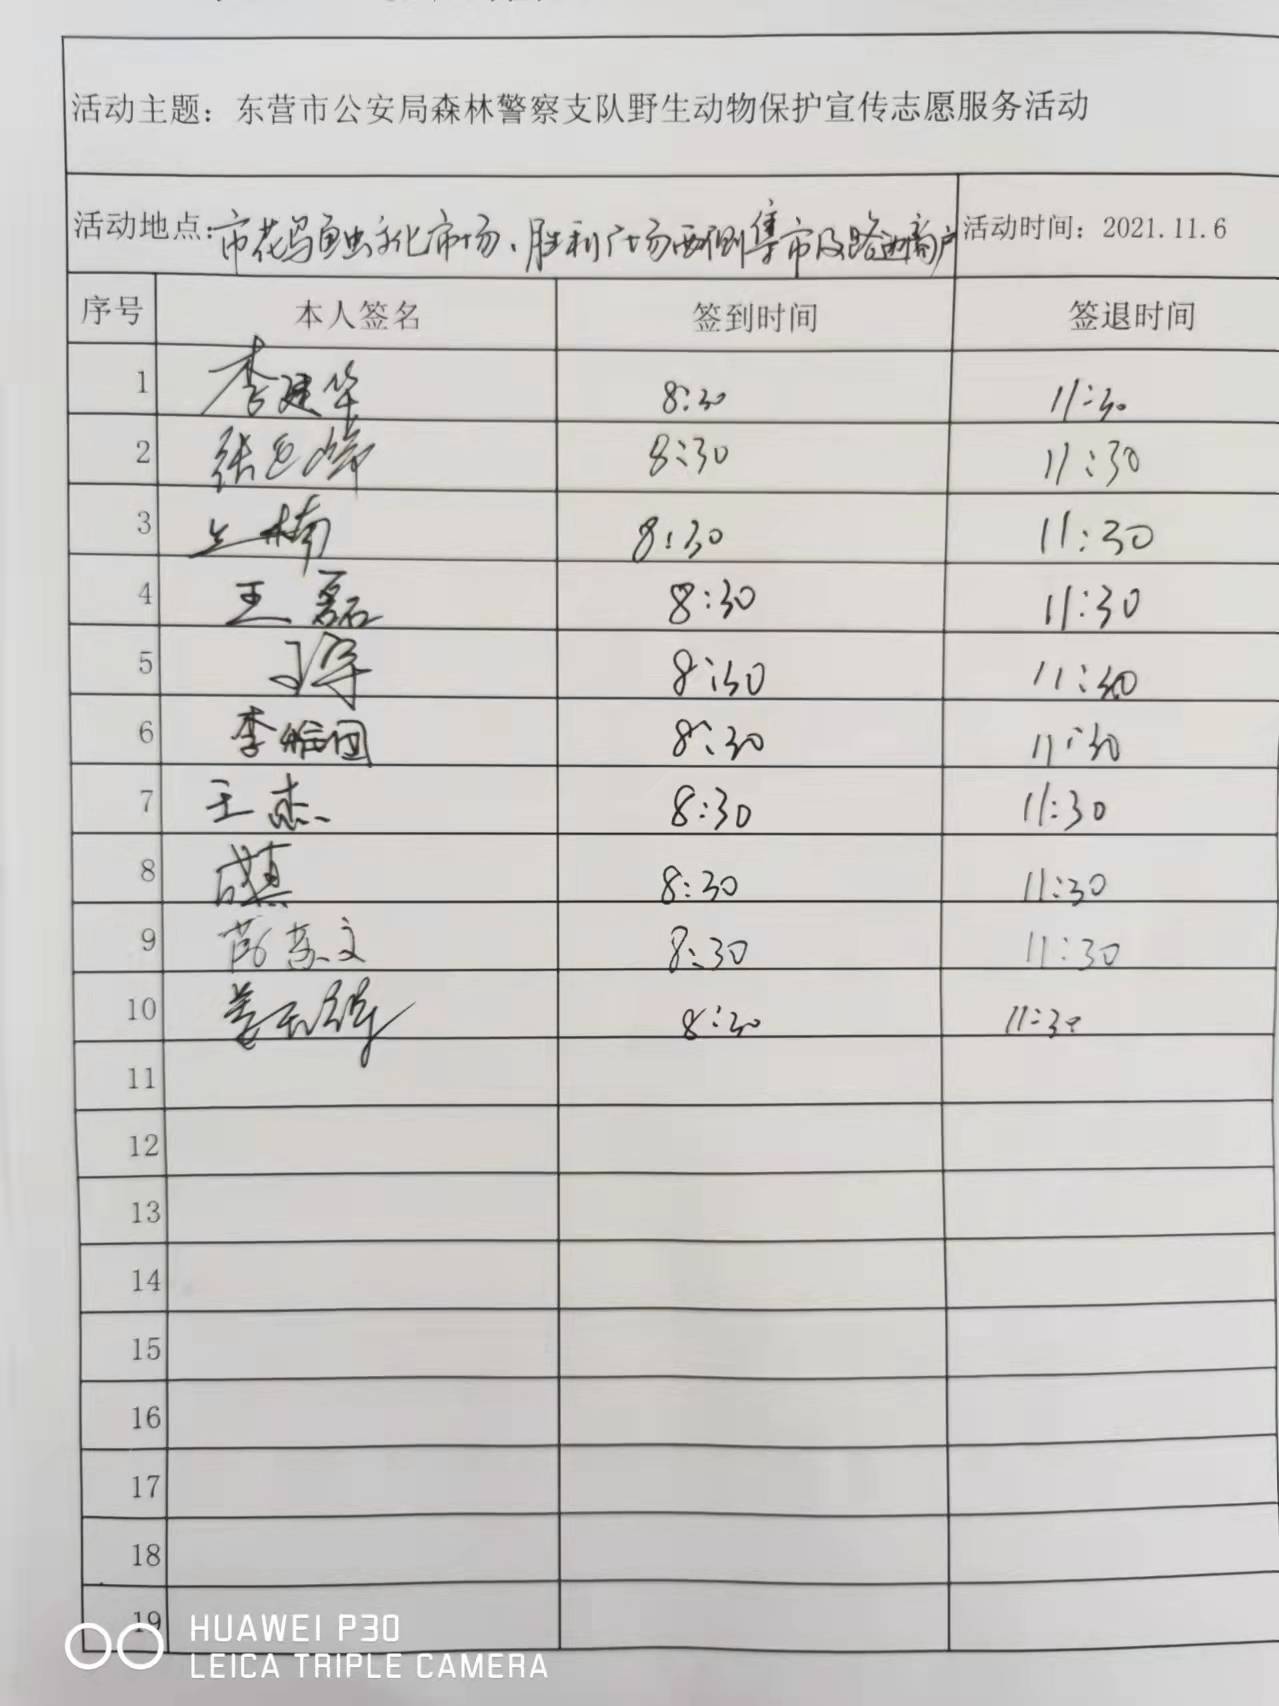 活动主题：东营市公安局森林警察支队野生动物保护宣传志愿服务活动
活动地点：市花鸟鱼虫文化市场、胜利广场西侧集市及路边商户 活动时间：2021.11.6
序号 本人签名 签到时间 签退时间
1 李建华 8:30 11:30
2 张 8:30 11:30
3 楠 8:30 11:30
4 王磊 8:30 11:30
5 8:30 11:30
6 李 8:30 11:30
7 王杰 8:30 11:30
8 8:30 11:30
9 文 8:30 11:30
10 姜 8:30 11:30
11
12
13
14
15
16
17
18
19
HUAWEI P30
LEICA TRIPLE CAMERA